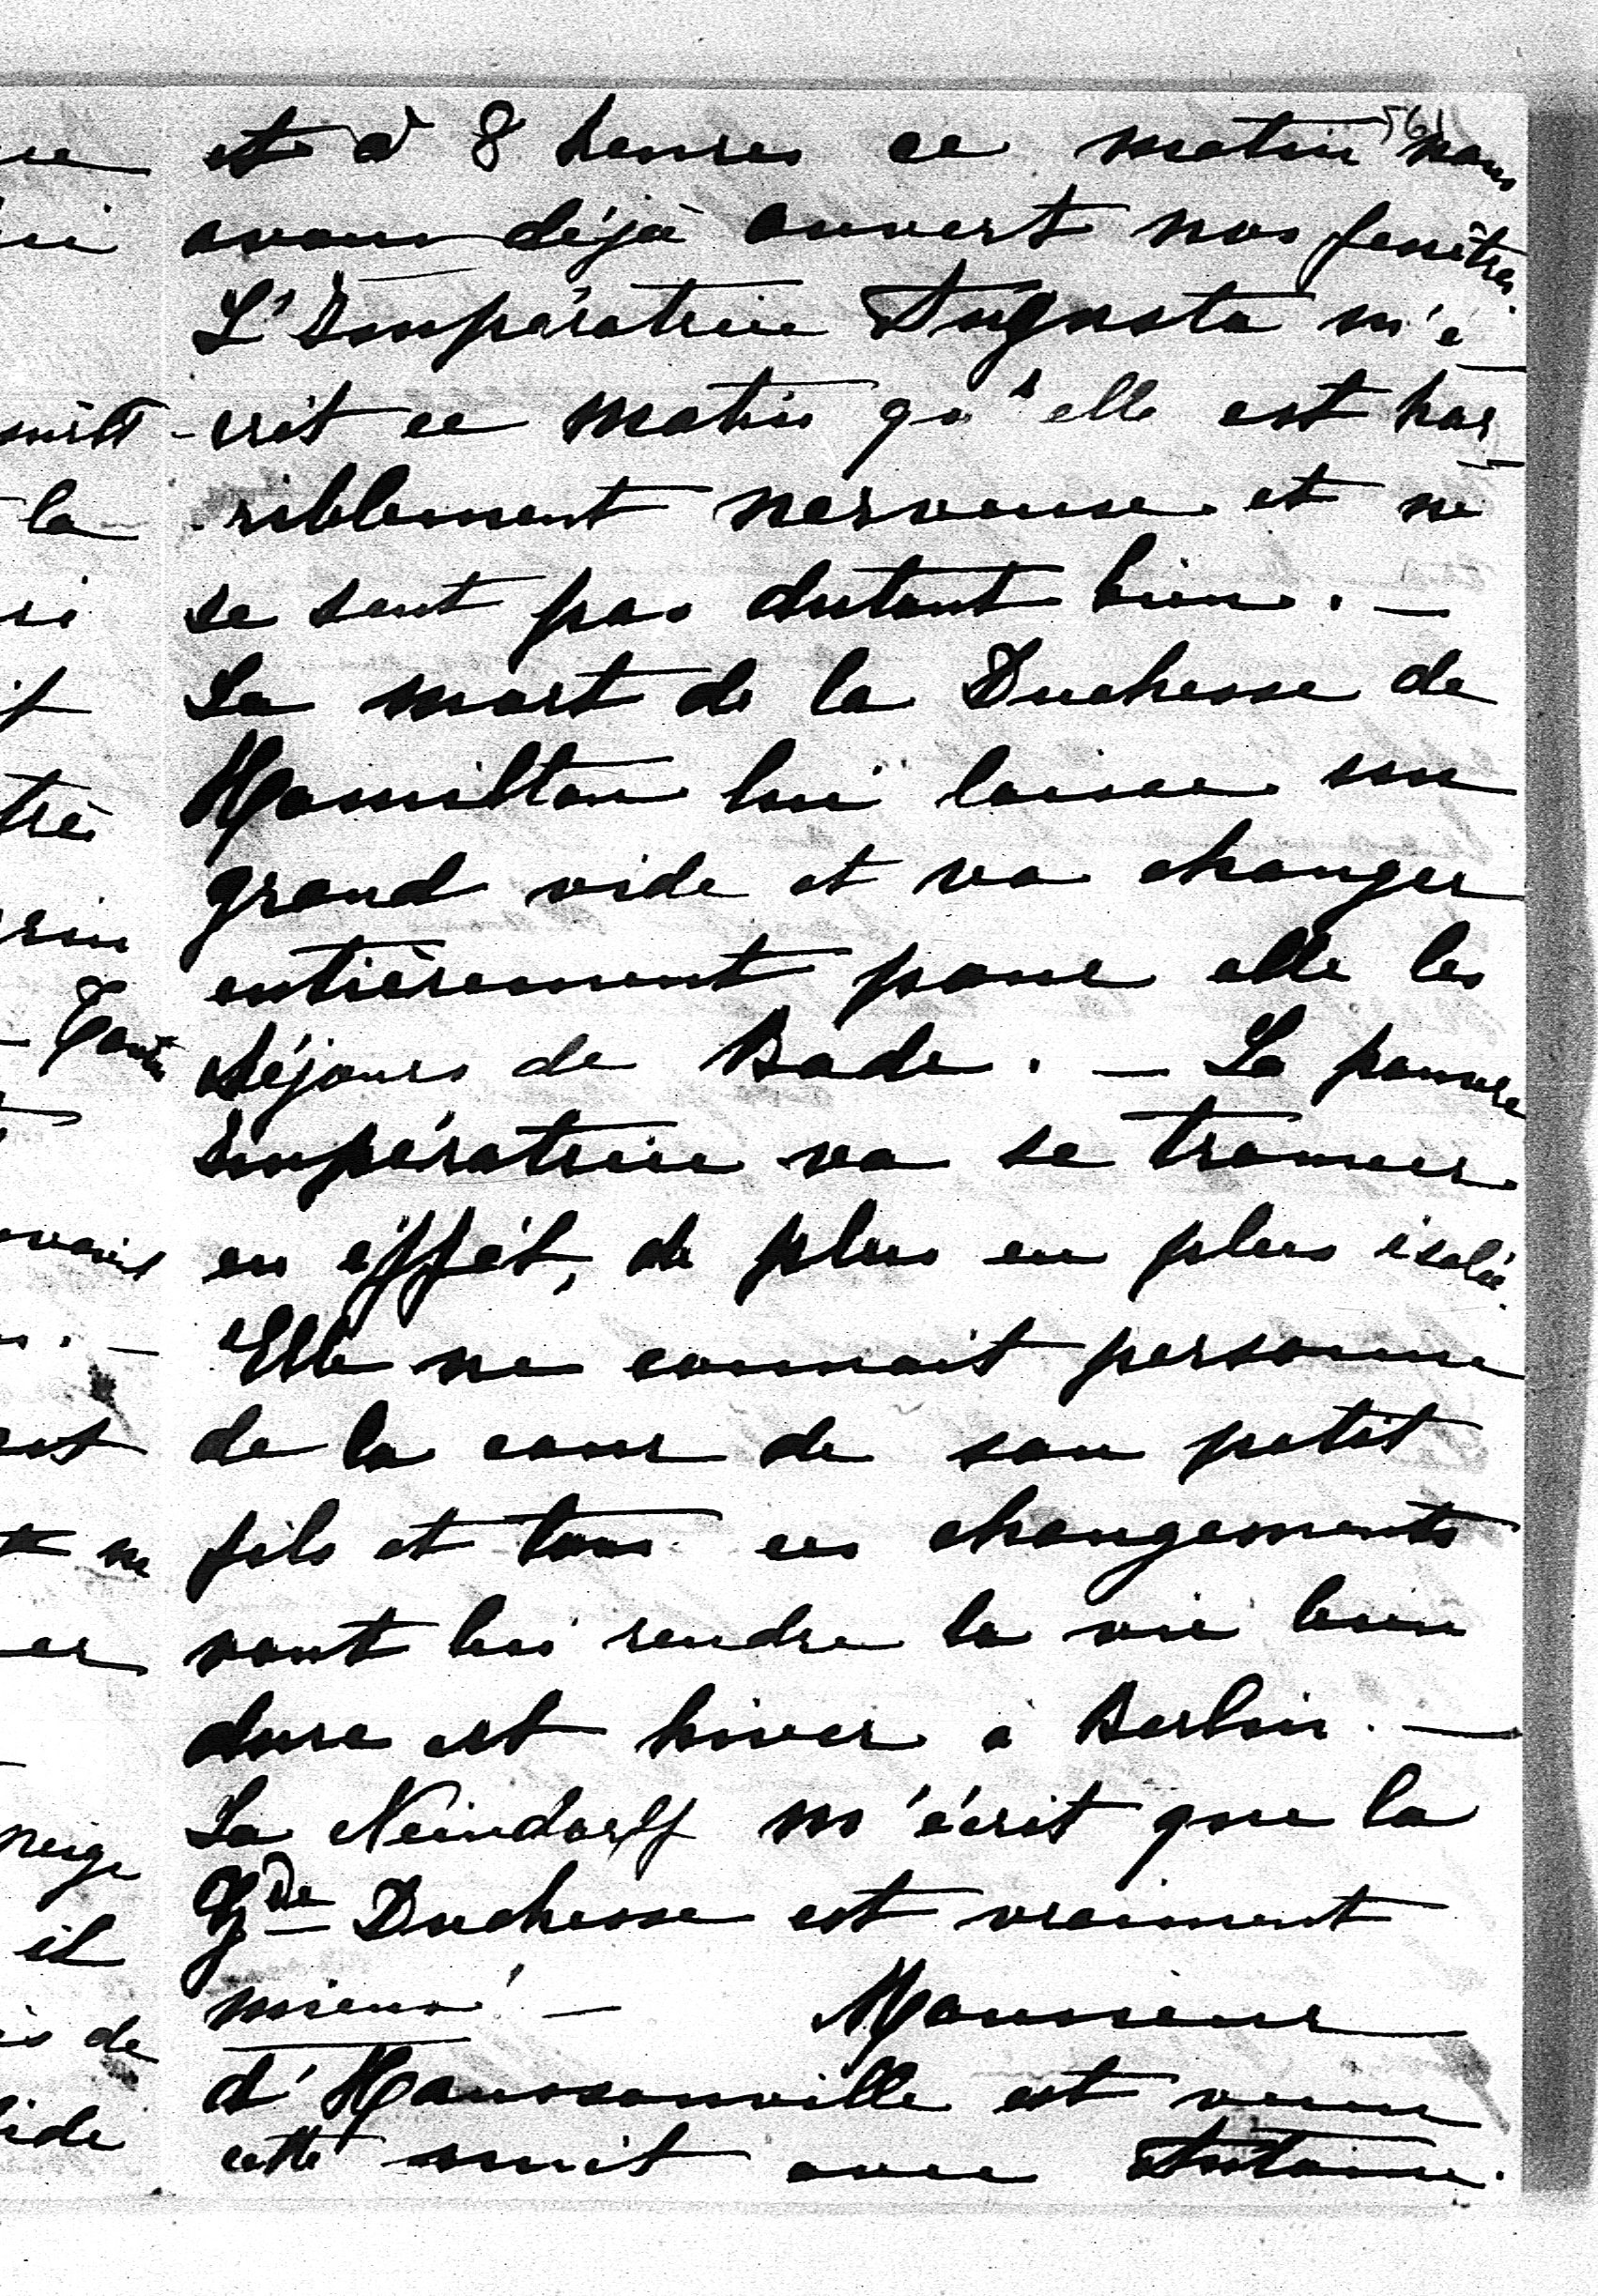 561
et à 8 heures ce matin nous
avons déjà ouvert nos fenêtres.
L'Impératrice Augusta m'é-
-crit ce matin qu'elle est hor-
-riblement nerveuse et ne
se sent pas du tout bien. —
La mort de la Duchesse de
Hamilton lui laisse un
grand vide et va changer
entièrement pour elle les
séjours de Bade. — La pauvre
Impératrice va se trouver
en éffét, de plus en plus isolée.
Elle ne connait personne
de la cour de son petit
fils et tous ces changements
vont lui rendre la vie bien
dure cet hiver à Berlin. —
La Neindorff m'écrit que la
Gde Duchesse est vraiment
mieux — Monsieur
d'Haussonville est venu
cette nuit avec Antoine.